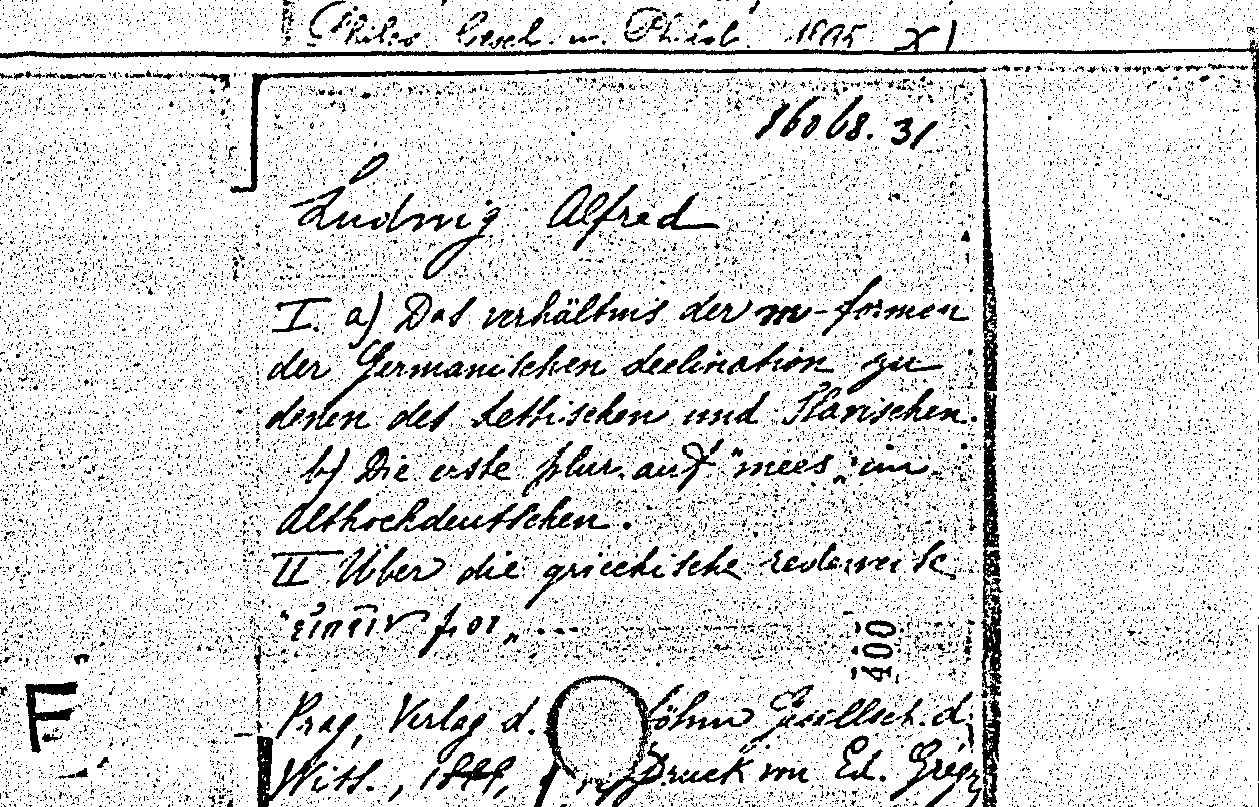 Philos. Gesch. u. Philol. 1885 X)
16068. 31
Ludwig Alfred
I. a) Das verhältnis der m-formen
der Germanischen declination zu
denen des Lettischen und Slavischen.
b) Die erste plur. auf "mees" im
Althochdeutschen.
II Über die griechische redeweise
"εἰπεῖν μοι" ...
400
Prag, Verlag d. böhm Gesellsch. d.
F
Wiss., Druck von Ed. Grégr